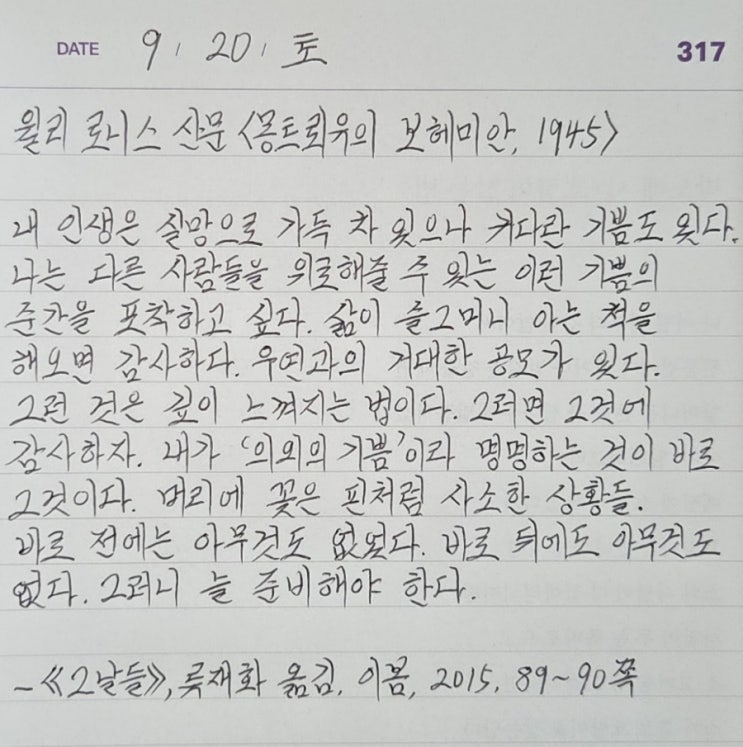 DATE 9 / 20 / 토 317
윌리 로니스 산문 <몽트뢰유의 보헤미안, 1945>
내 인생은 실망으로 가득 차 있으나 커다란 기쁨도 있다.
나는 다른 사람들을 위로해줄 수 있는 이런 기쁨의
순간을 포착하고 싶다. 삶이 슬그머니 아는 척을
해오면 감사하다. 우연과의 거대한 공모가 있다.
그런 것은 깊이 느껴지는 법이다. 그러면 그것에
감사하자. 내가 '의외의 기쁨'이라 명명하는 것이 바로
그것이다. 머리에 꽂은 핀처럼 사소한 상황들.
바로 전에는 아무것도 없었다. 바로 뒤에도 아무것도
없다. 그러니 늘 준비해야 한다.
-《그날들》, 류재화 옮김, 이봄, 2015, 89~90쪽